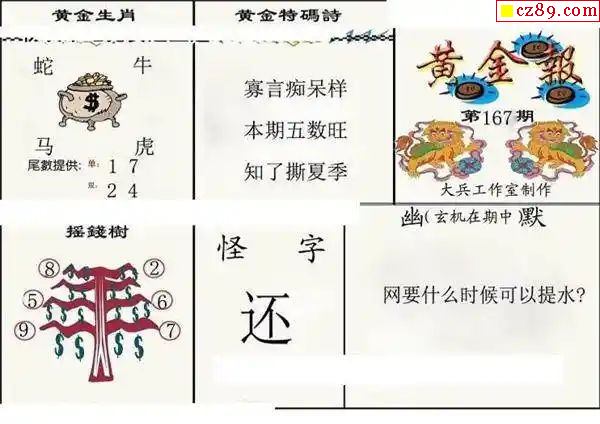 黄金生肖
蛇 牛
$
马 虎
尾數提供: 单: 1 7
双: 2 4
黄金特碼詩
寡言痴呆样
本期五数旺
知了撕夏季
cz89.com
黄金報
第167期
大兵工作室制作
摇錢樹
⑧ ②
⑤ ⑥
⑨ ⑦
怪 字
还
幽(玄机在期中)默
网要什么时候可以提水?